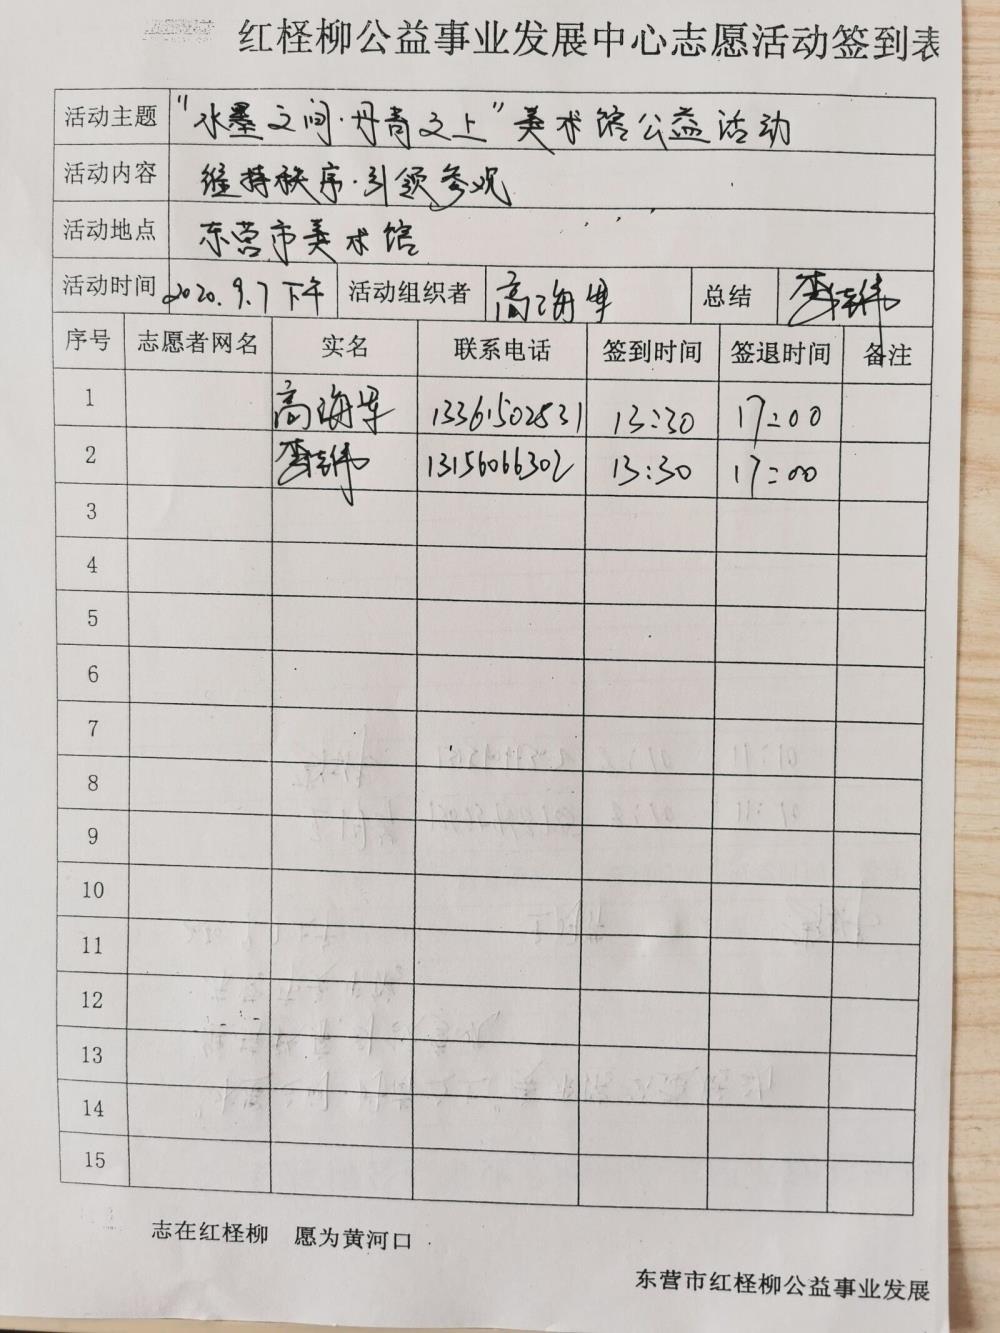 红柽柳公益事业发展中心志愿活动签到表
活动主题 "水墨之间·丹青之上"美术馆公益活动
活动内容 维持秩序·引领参观
活动地点 东营市美术馆
活动时间 2020.9.7下午 活动组织者 高海军 总结
序号 志愿者网名 实名 联系电话 签到时间 签退时间 备注
1 高海军 13361502831 13:30 17:00
2 13156066302 13:30 17:00
3
4
5
6
7
8
9
10
11
12
13
14
15
志在红柽柳 愿为黄河口
东营市红柽柳公益事业发展